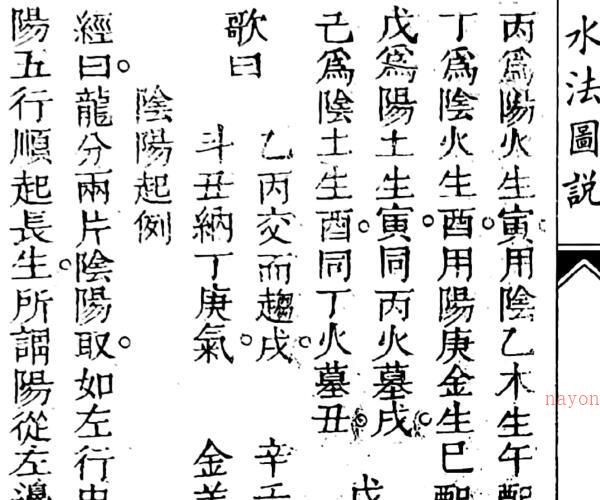 水法圖説
丙為陽火生寅。用陰乙木生午配
丁為陰火生酉。用陽庚金生巳配
戊為陽土生寅。同丙火墓戌。戊
己為陰土生酉。同丁火墓丑。
歌曰 乙丙交而趨戌。 辛壬
斗丑納丁庚氣。 金羊
陰陽起例
經曰。龍分兩片陰陽取。如左行
陽五行順起長生。所謂陽從左邊
nayon